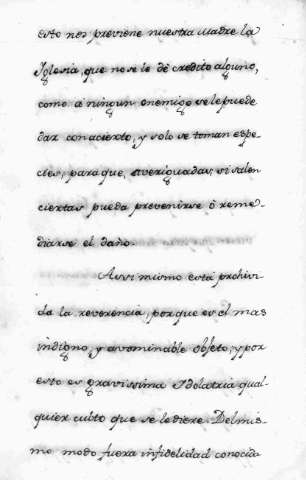 esto nos previene nuestra Madre la
Iglesia, que no se le dé credito alguno,
como á ningun enemigo se le puede
dar con acierto, y solo se toman espe-
cies, para que, averiguadas, si salen
ciertas pueda prevenirse ó reme-
diarse el daño.
Assi mismo está prohivi-
da la reverencia, porque es el mas
indigno, y avominable objeto, y por
esto es gravissima Idolatria qual-
quier culto que se le diere. Del mis-
mo modo fuera infidelidad conocida